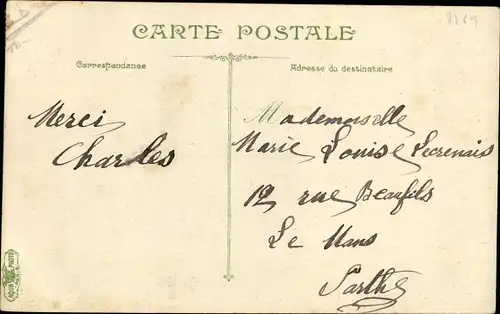 CARTE POSTALE
Correspondance
Adresse du destinataire
Merci
Charles
Mademoiselle
Marie Louise Lecrenais
12 rue Beaufils
Le Mans
Sarthe